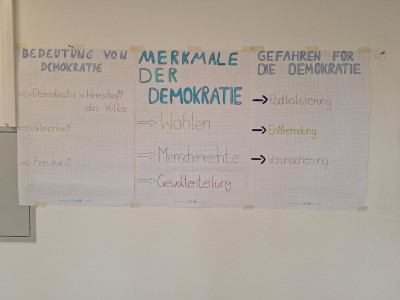 BEDEUTUNG VON
DEMOKRATIE
⇒ Demokratie = Herrschaft
des Volkes
⇒ Gleichheit
⇒ Freiheit
MERKMALE
DER
DEMOKRATIE
⇒ Wahlen
⇒ Menschenrechte
⇒ Gewaltenteilung
GEFAHREN FÜR
DIE DEMOKRATIE
→ Radikalisierung
→ Entfremdung
→ Verunsicherung